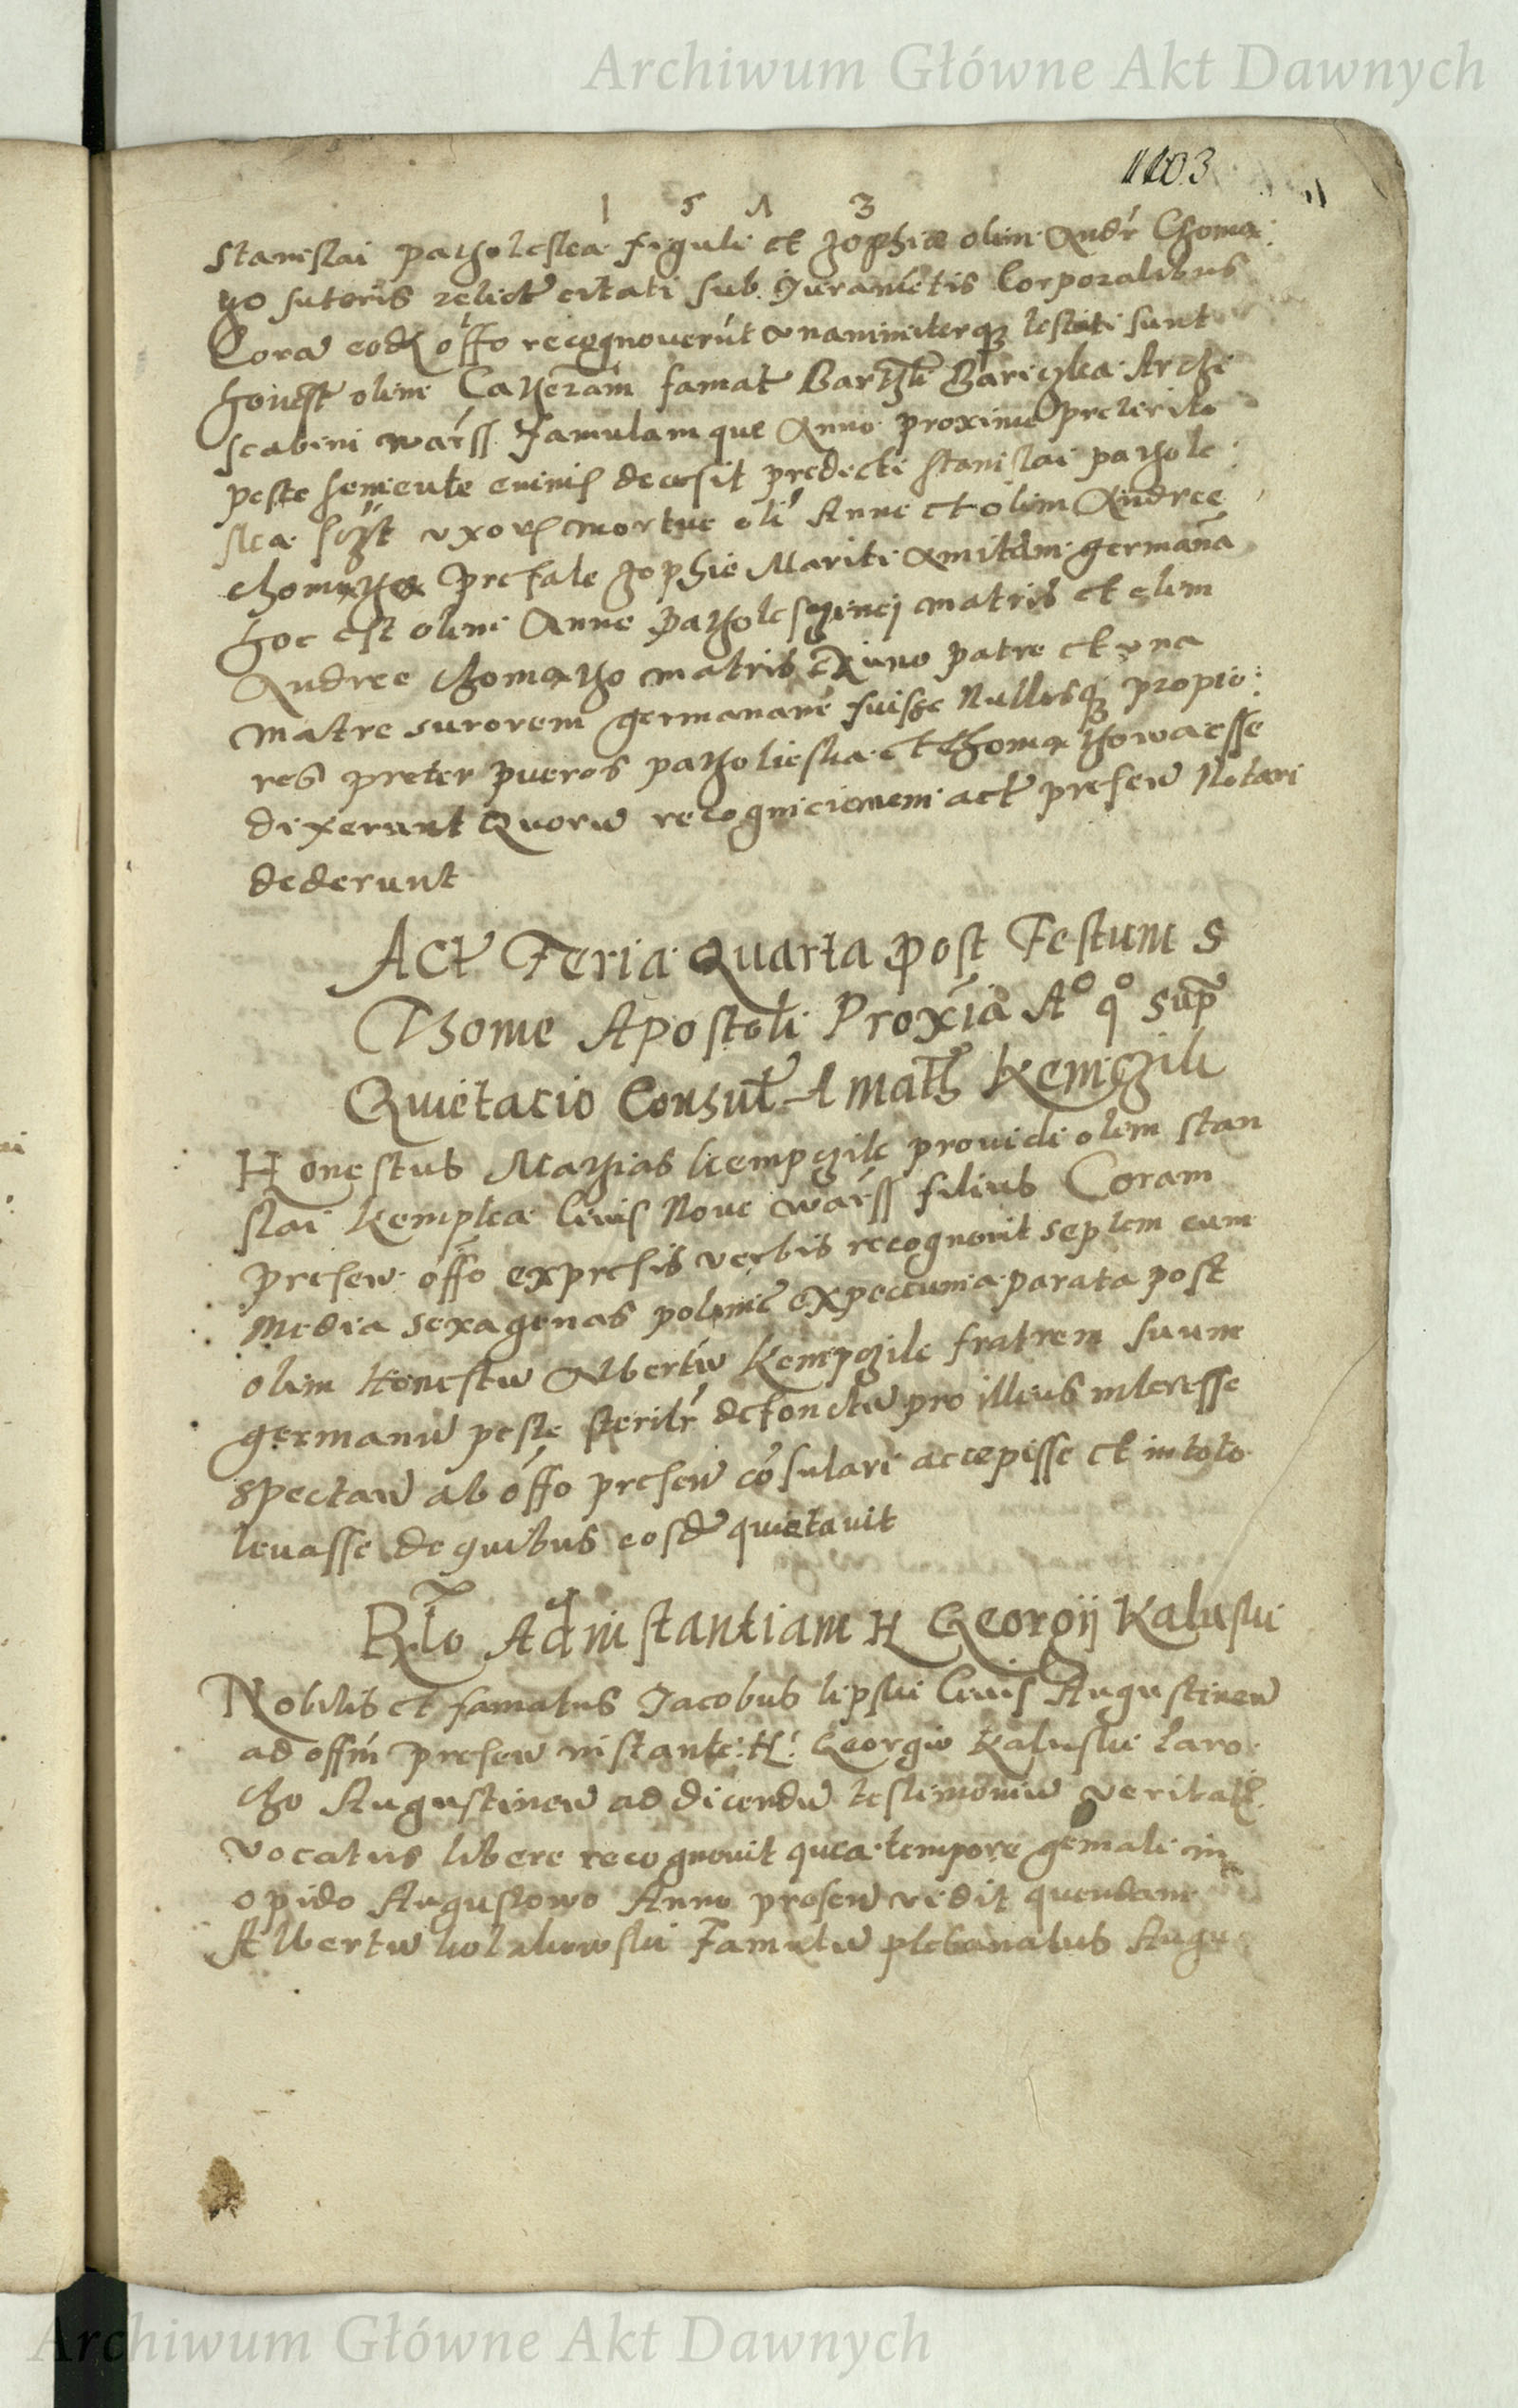 Archiwum Główne Akt Dawnych
1103
1 5 7 3
Stanislai patholeska figuli et zophiæ olim Andr Choma
tko sutoris relict citati sub Juramētis Corporalibus
Corā eodē offo recognoverūt unanimiterq testati sunt
honest olim Catherām famat Barthli Bariczka Archi
scabini warss famulam que Anno proxime preterito
peste seniente decessit predicti stanislai pathole
ska uxoris mortue oli Anne et olim Andree
chomątko prefate zophie Mariti Amitam germanā
hoc est olim Anne patholesczinej matris et olim
Andree chomątko matris Ex uno patre et una
matre sororem germanam fuisse Nullosq propio:
res preter pueros patholieska et chomątkowa esse
dixerunt Quorū recognicionem act presen Notari
dederunt
Act Feria Quarta post Festum S
Thome Apostoli Proxīa A° q° supr
Quietacio Consul A math Kempczik
Honestus Mathias kempczik providi olim stan
slai kempka Civis Nove warss filius Coram
presen offo expresis verbis recognovit septem cum
media sexagenas polonic ex peccunia parata post
olim Honestū Albertū kempczik fratrem suum
germanū peste sterilr defonctū pro illius interesse
spectan ab offo presen cōsulari accepisse et in toto
levasse de quibus eosdē quietavit
Rtō Ad instantiam H Georgij Kaluski
Nobilis et famatus Jacobus lipski Civis Augustinen
ad offm presen instante H: Georgio Kaluski
cho Augustinen ad dicendū testimoniū veritatis
vocatus libere recognovit quia tempore gemali in
opido Augustowo Anno presen vedit quendam
Albertū Famulū plebanalus Augu
Archiwum Główne Akt Dawnych